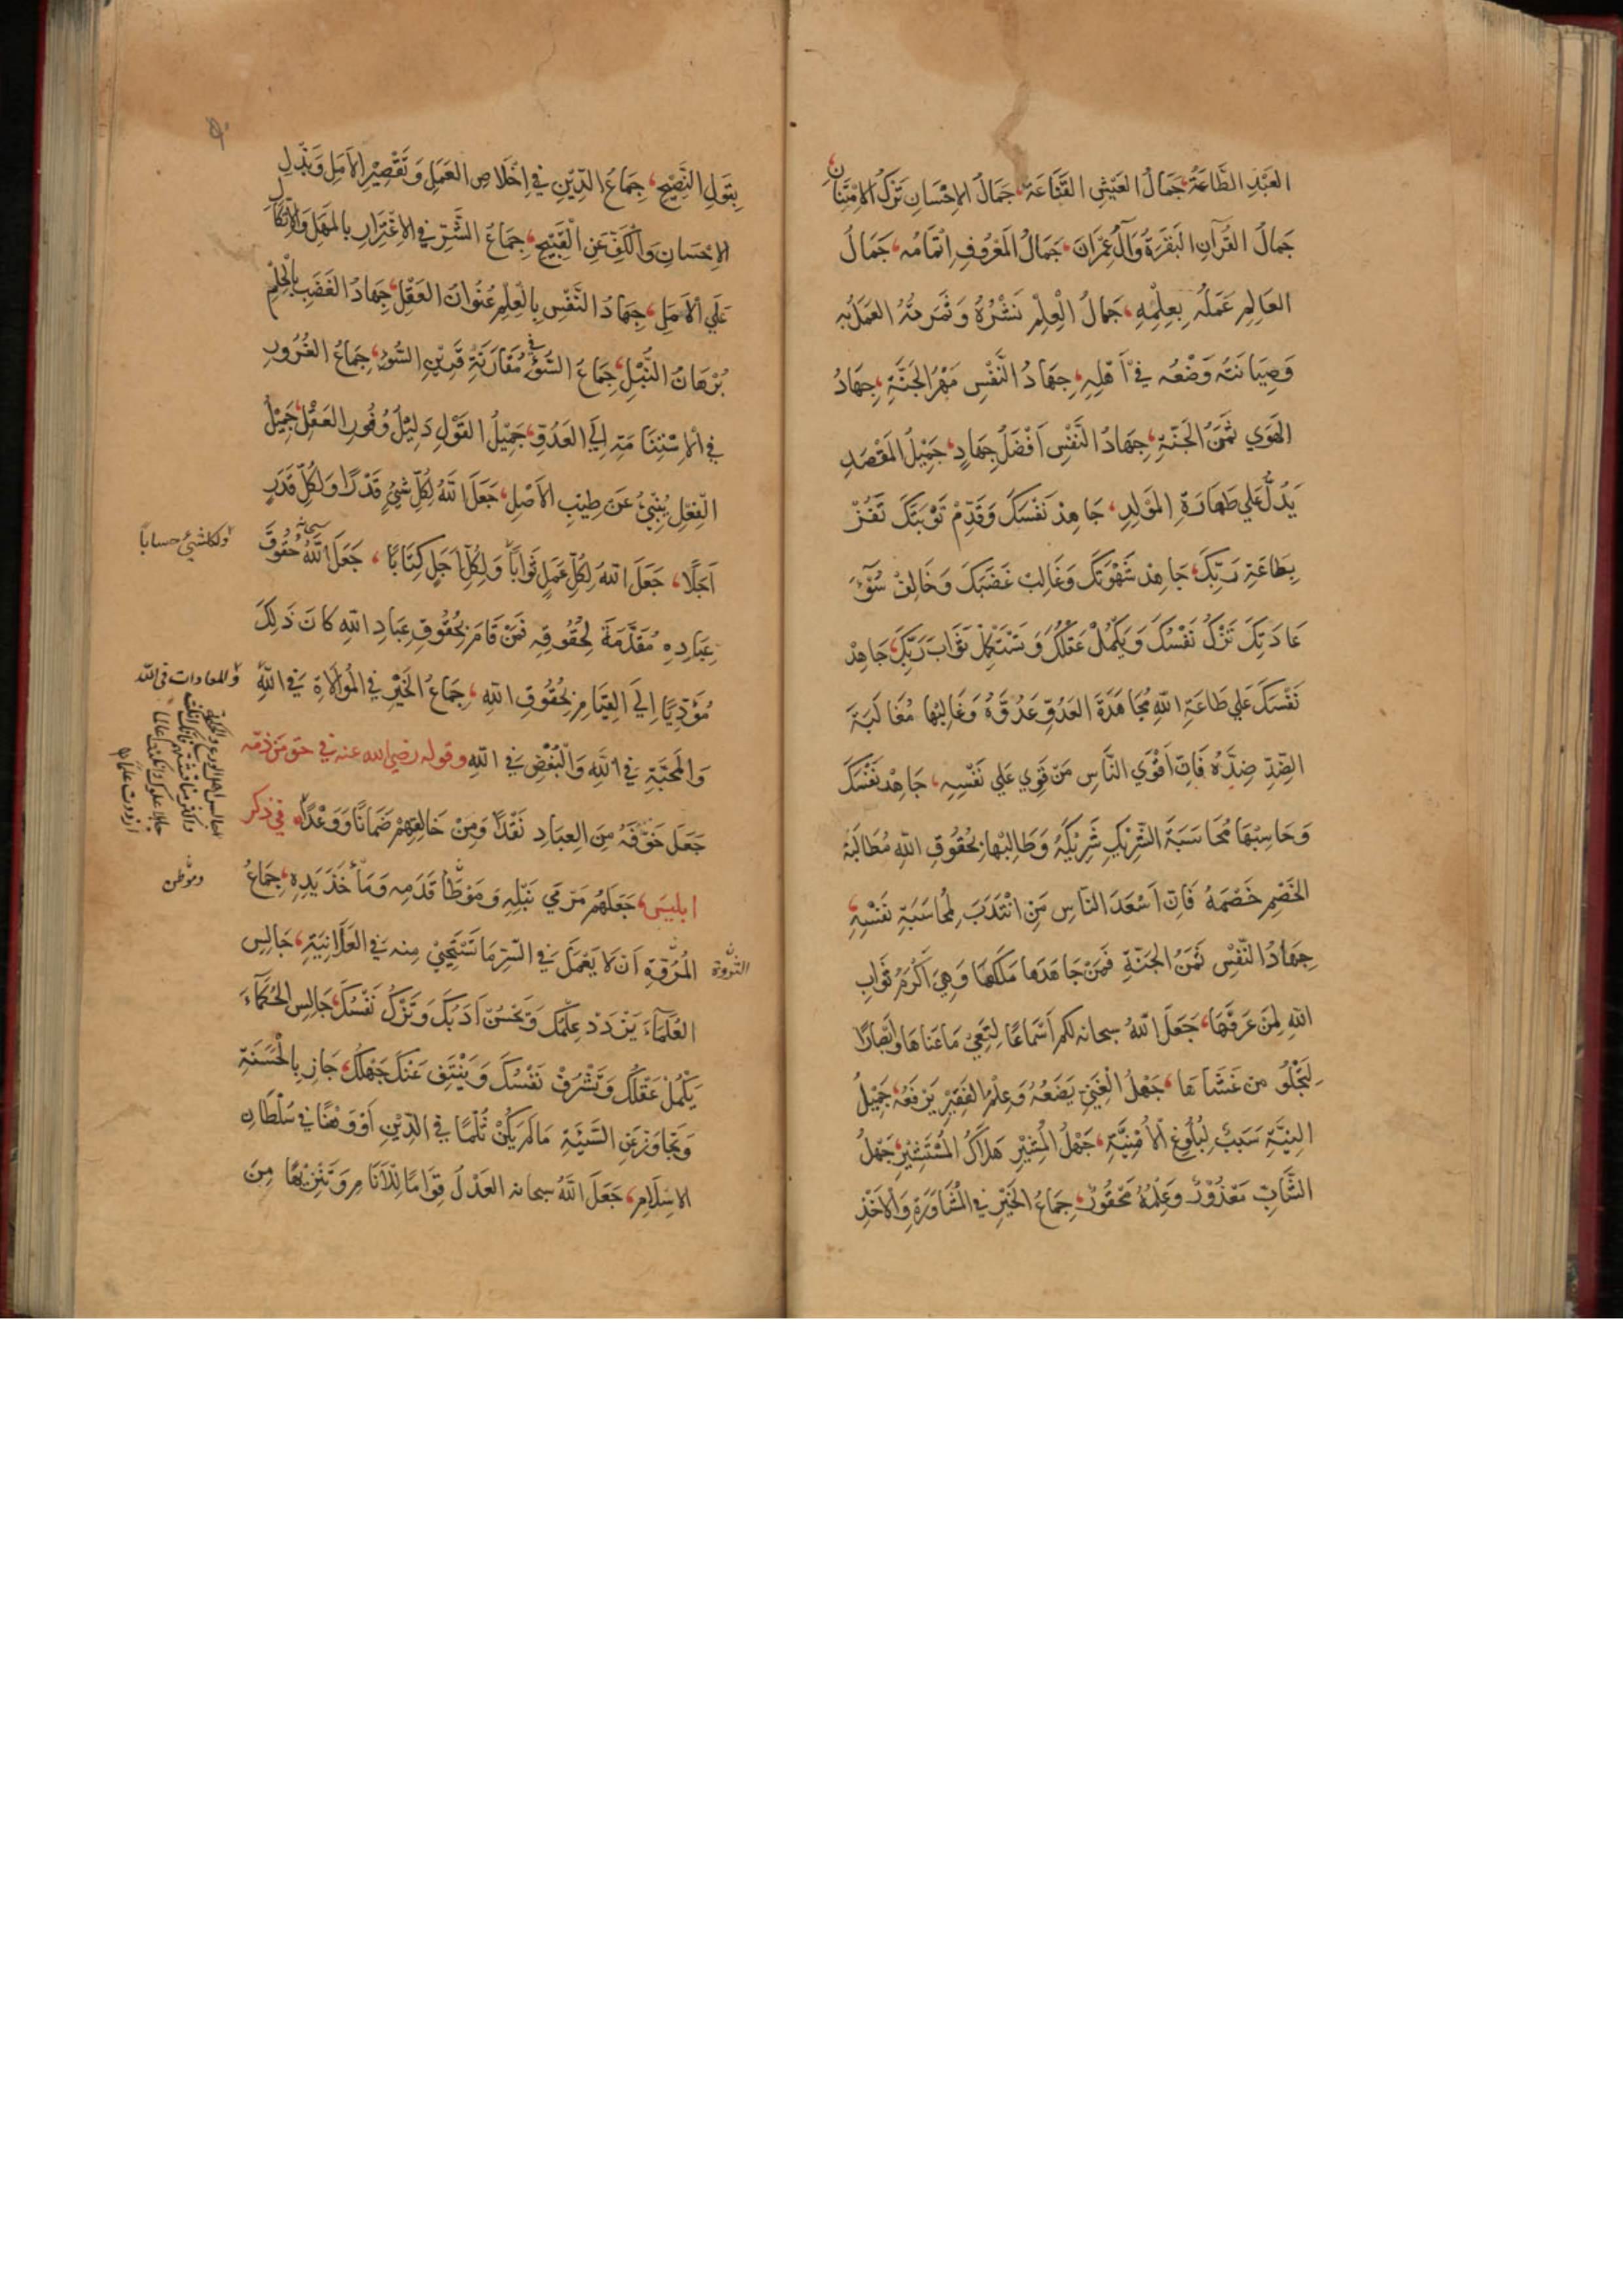 العَبْدِ الطَّاعَةُ، جَمَالُ العَيْشِ القَنَاعَة، جَمَالُ الإحْسَانِ تَرْكُ الامْتِنَانِ
جَمالُ القُرْآنِ البَقَرَةُ وَآلُ عِمْرَانَ، جَمَالُ المَعْرُوفِ اِتْمَامُه، جَمَالُ
العَالِمِ عَمَلُه بِعِلْمِهِ، جَمَالُ الْعِلْمِ نَشْرُهُ وَثَمَرَتُهُ العَمَلُ بِهِ
وَصِيَانَتُه وَضْعُه فِي أَهْلِهِ، جِهَادُ النَّفْسِ مَهْرُ الجَنَّةِ، جِهَادُ
الهَوَي ثَمَنُ الجَنَّةِ، جِهَادُ النَّفْسِ اَفْضَلُ جِهَادٍ، جَمِيْلُ المَقْصَدِ
يَدُلُّ عَلي طَهَارَةِ المَوْلِدِ، جَاهِدْ نَفْسَكَ وَقَدِّمْ تَوْبَتَكَ تَفُزْ
بِطَاعَةِ رَبِّكَ، جَاهِدْ شَهْوَتَكَ وَغَالِبْ غَضَبَكَ وَخَالِفْ سُوْٓءَ
عَادَتِكَ تَزْكُ نَفْسُكَ وَيَكْمُلْ عَقْلُكَ وَتَسْتَكْمِلْ ثَوَابَ رَبِّكَ، جَاهِدْ
نَفْسَكَ عَلي طَاعَةِ اللهِ مُجَاهَدَةَ العَدُوِّ عَدُوَّهُ وَغَالِبْهَا مُغَالَبَةَ
الضِّدِّ ضِدَّهُ فَاِنَّ اَقْوَي النَّاسِ مَنْ قَوِيَ عَلي نَفْسِهِ، جَاهِدْ نَفْسَكَ
وَحَاسِبْهَا مُحَاسَبَةَ الشَّرِيْكِ شَرِيْكَهُ وَطَالِبْهَا بِحُقُوقِ اللهِ مُطَالَبَةَ
الخَصْمِ خَصْمَهُ فَاِنَّ اَسْعَدَ النَّاسِ مَنِ انْتَدَبَ لِمُحَاسَبَةِ نَفْسِهِ،
جِهَادُ النَّفْسِ ثَمَنُ الجَنَّةِ فَمَنْ جَاهَدَهَا مَلَكَهَا وَهِيَ اَكْرَمُ ثَوَابِ
اللهِ لِمَنْ عَرَفَهَا، جَعَلَ اللهُ سبحانه لكم اَسْمَاعًا لِتَعِيَ مَا عَنَاهَا وَاَبْصَارًا
لِتَجْلُوَ من غَشَاهَا، جَهْلُ الغَنِيِّ يَضَعُهُ وَعِلْمُ الفَقِيْرِ يَرْفَعُهُ، جَمِيْلُ
النِيَّةِ سَبَبٌ لِبُلُوغِ الأُمْنِيَّةِ، جَهْلُ المُشِيْرِ هَلاَكُ المُسْتَشِيْرِ، جَهْلُ
الشَّابِّ مَعْذُوْرٌ وَعِلْمُهُ مَحْقُورٌ، جِمَاعُ الخَيْرِ فِي المُشَاوَرَةِ وَالاَخْذِ
بِقَولِ النَّصِيْحِ، جِمَاعُ الدِّيْنِ فِي اِخْلَاصِ العَمَلِ وَتَقْصِيْرِ الاَمَلِ وَبَذْلِ
الاِحْسَانِ وَالْكَفِّ عَنِ الْقَبِيْحِ، جِمَاعُ الشَّرِّ فِي الاِغْتِرَارِ بالمَهَلِ وَالاِتِّكَالِ
عَلَي الاَمَلِ، جِهَادُ النَّفْسِ بِالْعِلْمِ عُنْوَانُ العَقْلِ، جِهَادُ الغَضَبِ بِالْحِلْمِ
بُرْهَانُ النُّبْلِ، جِمَاعُ السُّوْءِ في مُقَارَنَةِ قَرِيْنِ السُّوْءِ، جِمَاعُ الغُرُورِ
فِي الاِسْتِنَامَةِ اِلَي العَدُوِّ، جَمِيْلُ القَوْلِ دَلِيْلُ وُفُورِ العَقْلِ، جَمِيْلُ
الفِعْلِ يُنْبِئُ عَنْ طِيْبِ الاَصْلِ، جَعَلَ اللهُ لِكُلِّ شَيْءٍ قَدْرًا وَلِكُلِّ قَدَرٍ
اَجَلًا، جَعَلَ اللهُ لِكُلِّ عَمَلٍ ثَوَاباً وَلِكُلِّ اَجَلٍ كِتَابًا، جَعَلَ اللهُ سبحانه حُقُوقَ
ولكل شيء حساباً
عِبَادِهِ مُقَدَّمَةً لِحُقُوقِهِ فَمَنْ قَامَ بِحُقُوقِ عِبَادِ اللهِ كانَ ذَلِكَ
مُؤَدِّيًا اِلَي القِيَامِ بِحُقُوقِ اللهِ، جِمَاعُ الخَيْرِ فِي المُوَالَاةِ فِي اللهِ
والمعادات في الله
وَالمَحَبَّةِ فِي اللهِ وَالْبُغْضِ فِي اللهِ وقوله رضي الله عنه في حق من ذمه
جَعَلَ خَوْفَهُ مِنَ العِبَادِ نَقْدًا وَمِنْ خَالِقِهِمْ ضَمَانًا وَوَعْدًا، في ذكر
ابليسَ، جَعَلَهُمْ مَرْمَي نَبْلِهِ وَمَوْطَأَ قَدَمِهِ وَمَأْخَذَ يَدِهِ، جِمَاعُ
وموطن
المُرُوَّةِ اَنْ لَا يَعْمَلَ فِي السِّرِّ مَا تَسْتَحْيِيْ مِنه فِي العَلَانِيَةِ، جَالِسِ
العُلَمَآءَ يَزْدَدْ عِلْمُكَ وَيَحْسُنْ اَدَبُكَ وَتَزْكُ نَفْسُكَ، جَالِسِ الحُكَمَآءَ
يَكْمُلْ عَقْلُكَ وَتَشْرُفْ نَفْسُكَ وَيَنْتَفِ عَنْكَ جَهْلُكَ، جَازِ بِالْحَسَنَةِ
وَتَجَاوَزْ عَنِ السَّيِّئَةِ مَا لَمْ يَكُنْ ثَلْمًا فِي الدِّيْنِ اَوْ وَهْنًا فِي سُلْطَانِ
الاِسْلَامِ، جَعَلَ اللهُ سبحانه العَدْلَ قِوَامًا لِلْاَنَامِ وَتَنْزِيْهًا مِنَ